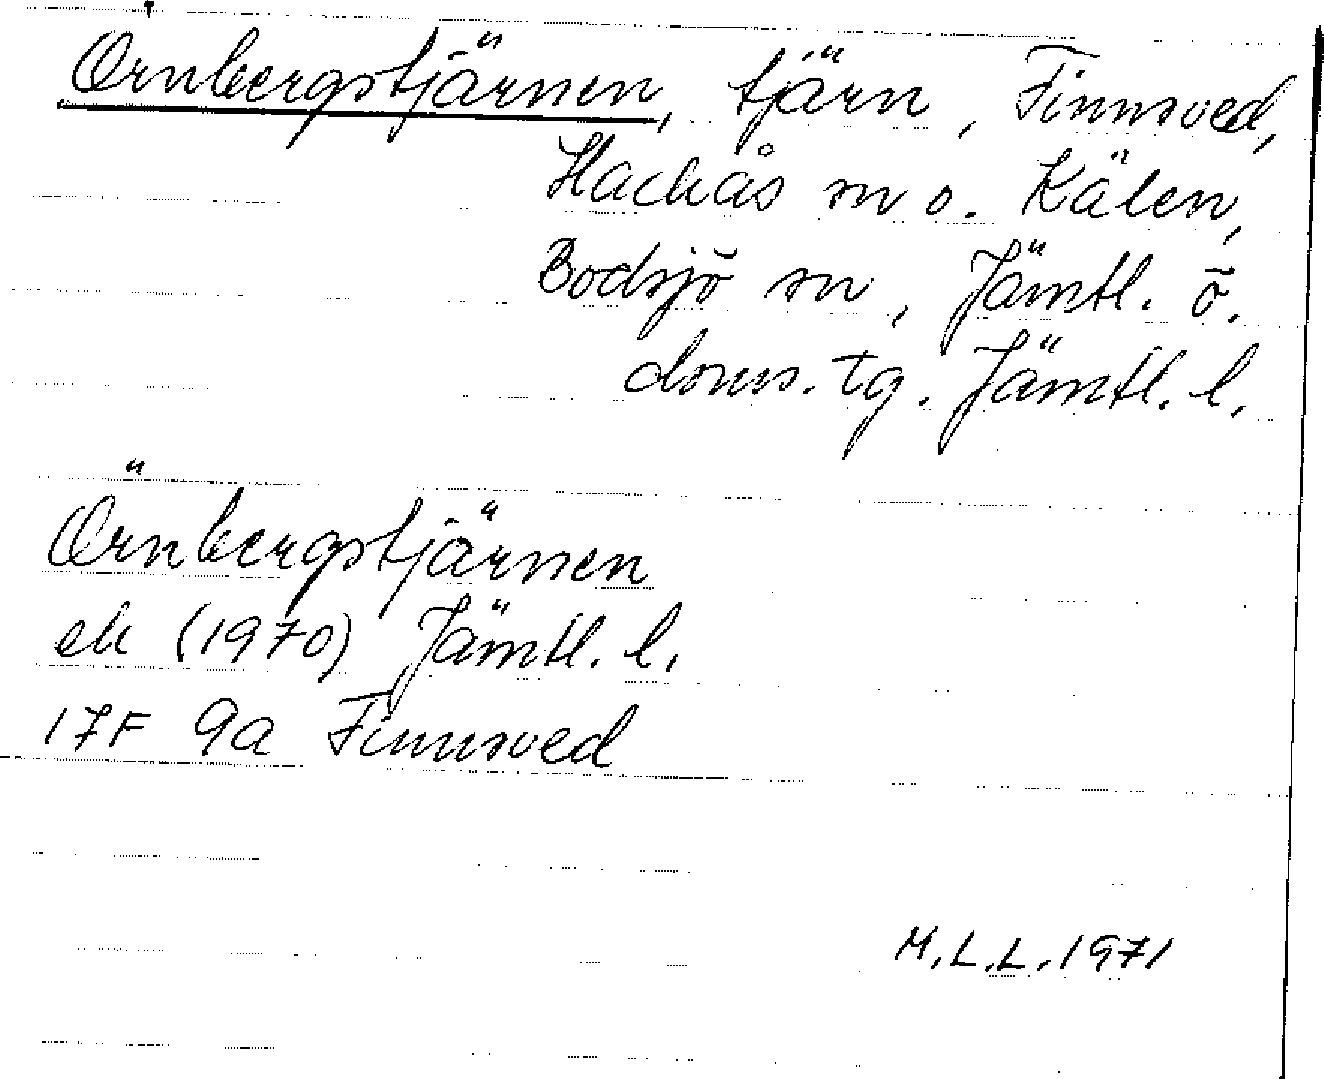 Örnbergstjärnen, tjärn, Finnsved,
Hackås sn o. Kälen,
Bodsjö sn, Jämtl. ö.
doms. tg. Jämtl. l.
Örnbergstjärnen
ek (1970) Jämtl. l.
17F 9a Finnsved
M.L.L. 1971